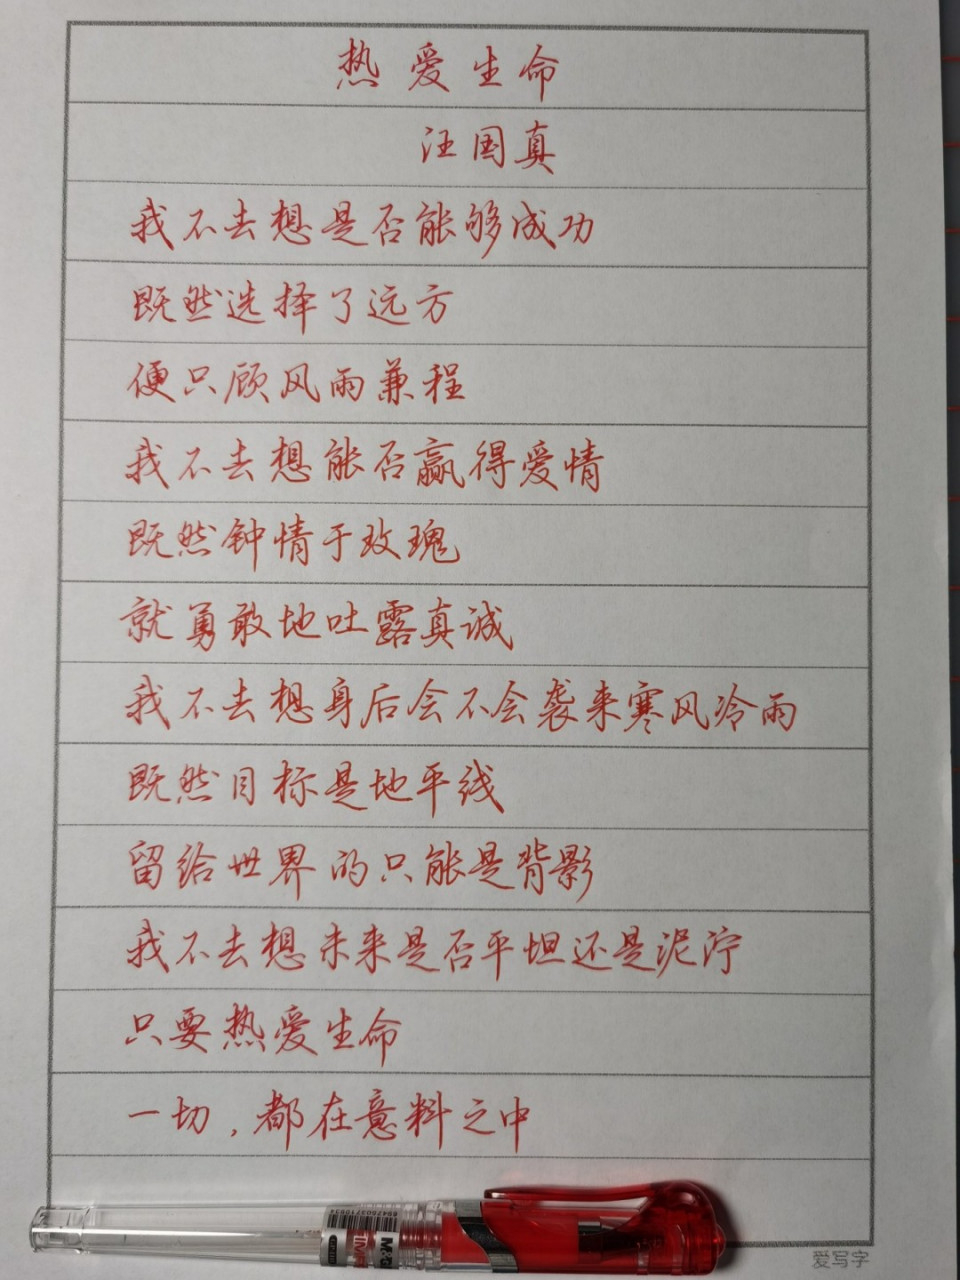 热爱生命
汪国真
我不去想是否能够成功
既然选择了远方
便只顾风雨兼程
我不去想能否赢得爱情
既然钟情于玫瑰
就勇敢地吐露真诚
我不去想身后会不会袭来寒风冷雨
既然目标是地平线
留给世界的只能是背影
我不去想未来是否平坦还是泥泞
只要热爱生命
一切，都在意料之中
爱写字